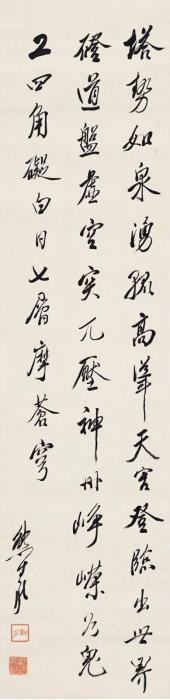 塔势如泉湧孤高耸天宫登臨出世界
磴道盤虚空突兀壓神州崢嶸若鬼
工四角礙白日七層摩蒼穹